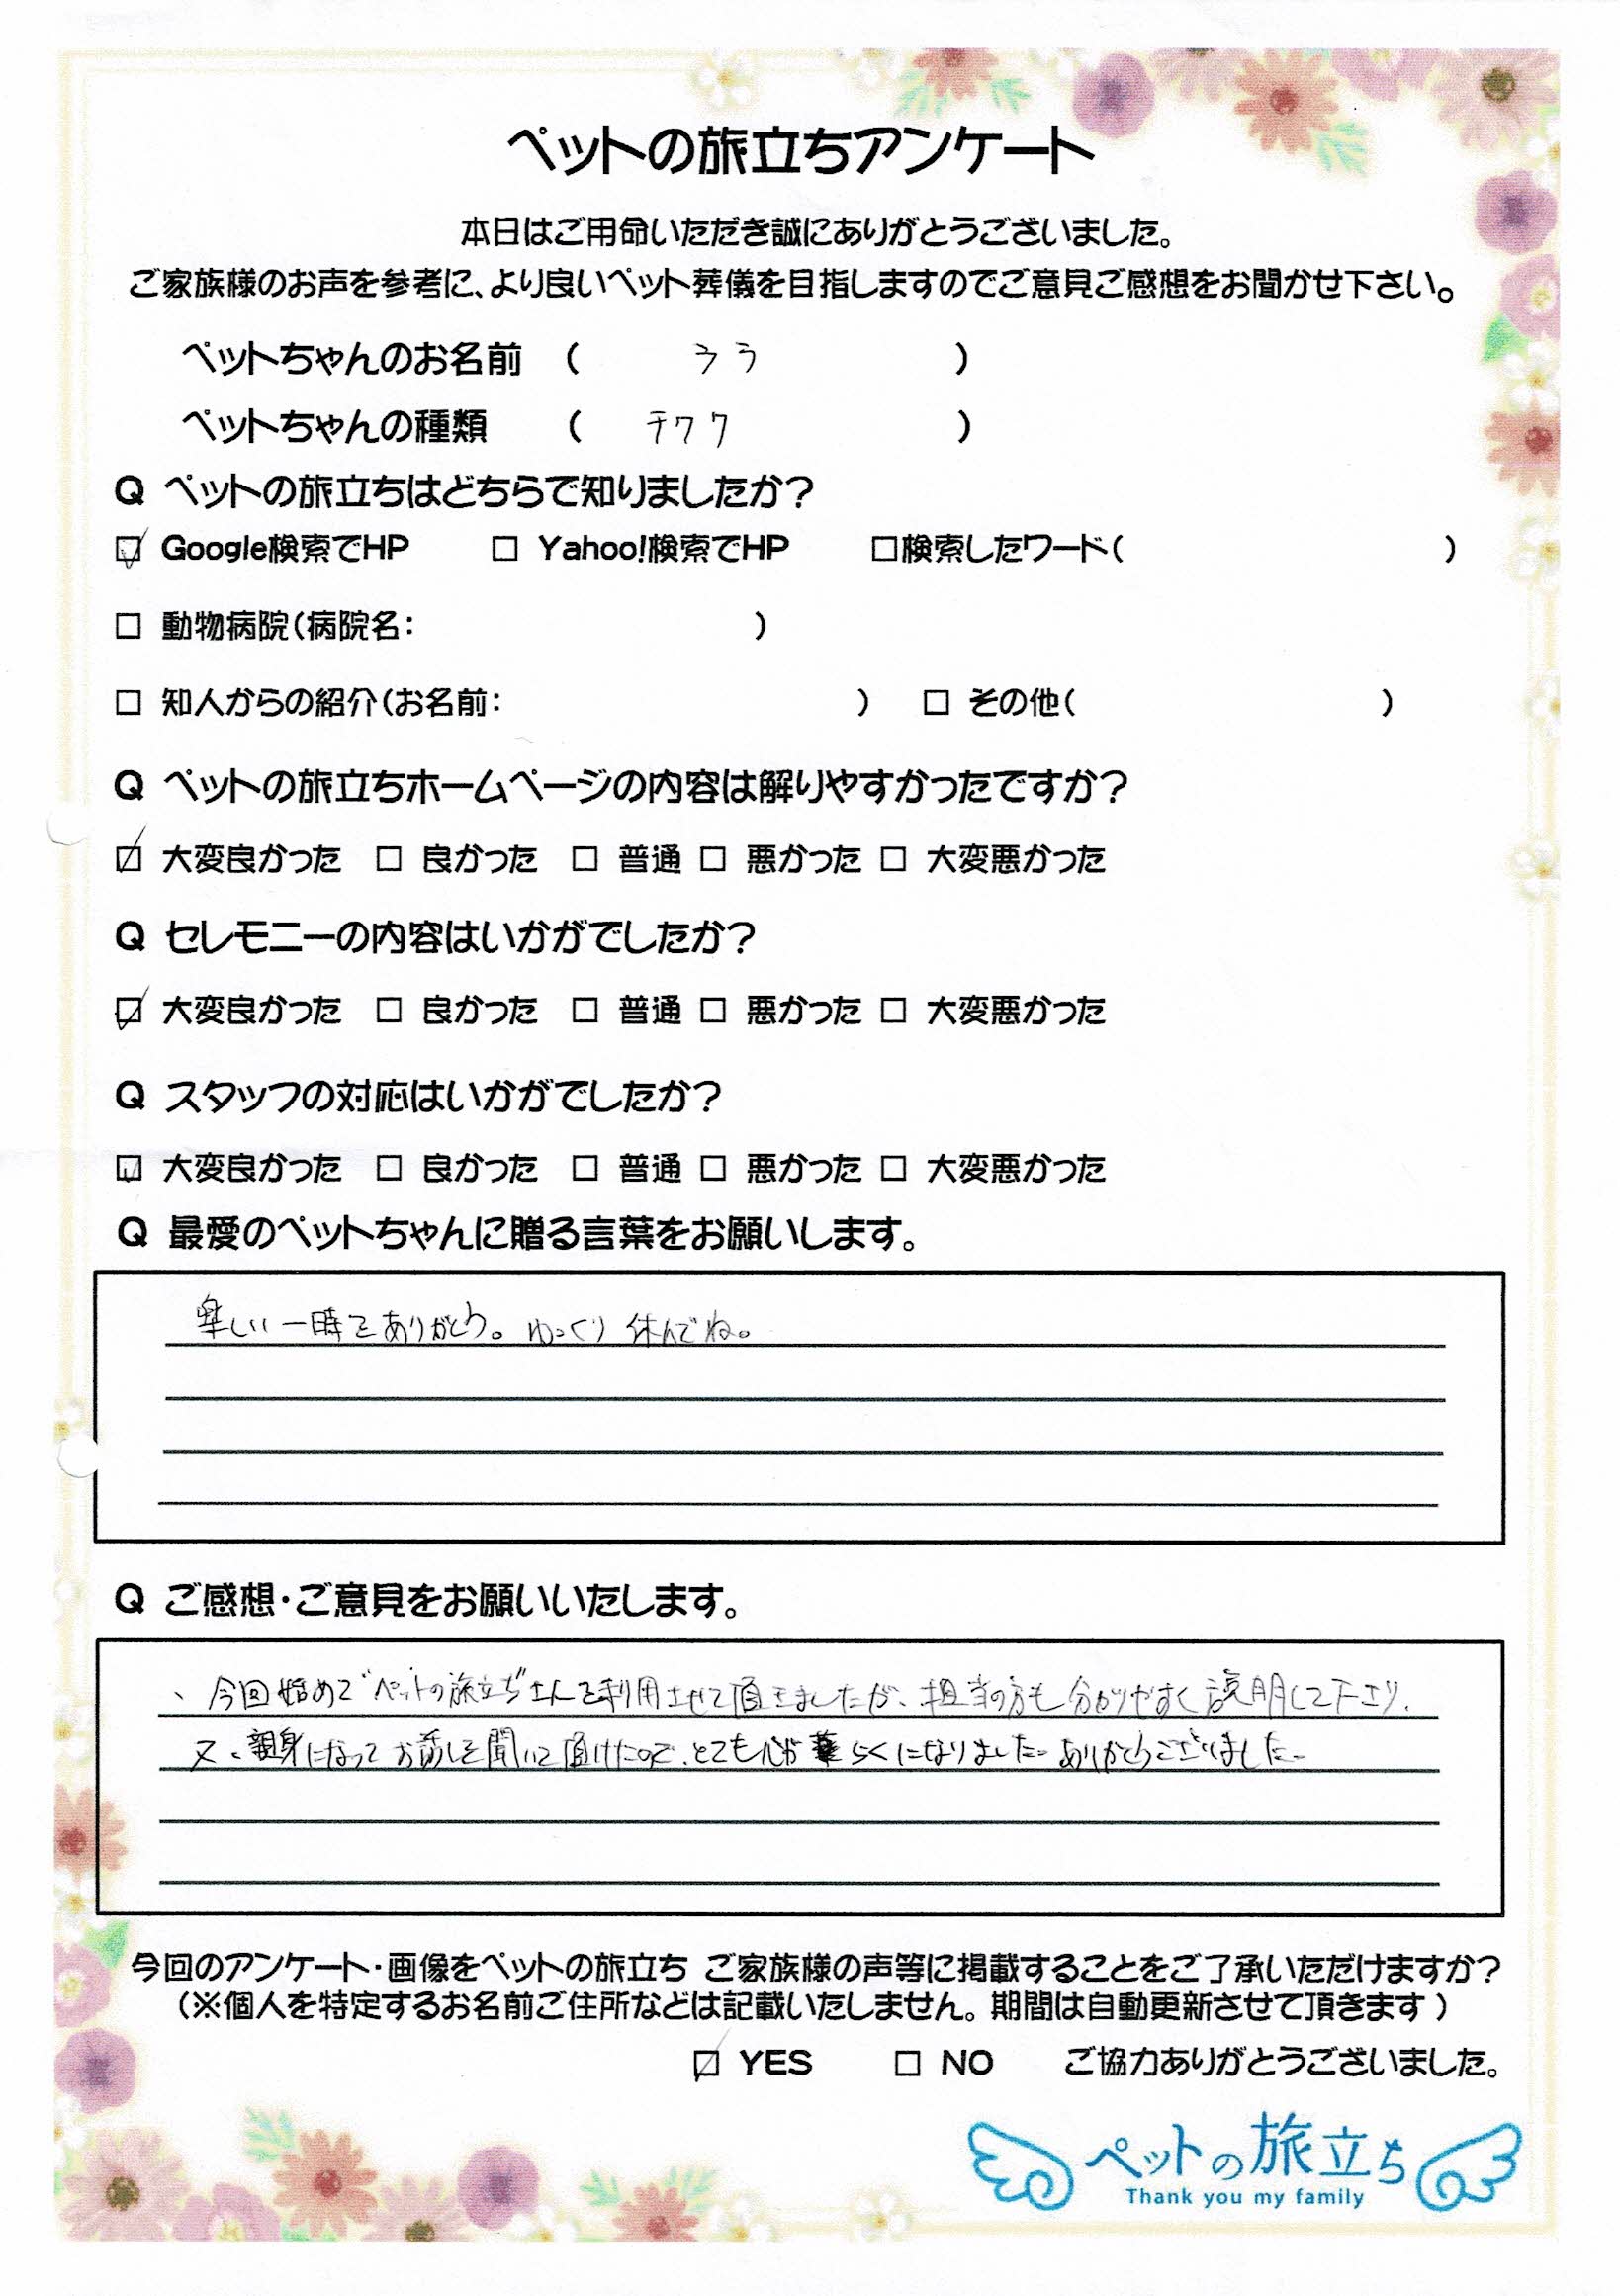 ペットの旅立ちアンケート
本日はご用命いただき誠にありがとうございました。
ご家族様のお声を参考に、より良いペット葬儀を目指しますのでご意見ご感想をお聞かせ下さい。
ペットちゃんのお名前 ( うう )
ペットちゃんの種類 ( チワワ )
Q ペットの旅立ちはどちらで知りましたか?
☑ Google検索でHP □ Yahoo!検索でHP □検索したワード( )
□ 動物病院(病院名: )
□ 知人からの紹介(お名前: ) □ その他( )
Q ペットの旅立ちホームページの内容は解りやすかったですか?
☑ 大変良かった □ 良かった □ 普通 □ 悪かった □ 大変悪かった
Q セレモニーの内容はいかがでしたか?
☑ 大変良かった □ 良かった □ 普通 □ 悪かった □ 大変悪かった
Q スタッフの対応はいかがでしたか?
☑ 大変良かった □ 良かった □ 普通 □ 悪かった □ 大変悪かった
Q 最愛のペットちゃんに贈る言葉をお願いします。
楽しい一時をありがとう。ゆっくり休んでね。
Q ご感想・ご意見をお願いいたします。
、今回始めて"ペットの旅立ち"さんを利用させて頂きましたが、担当の方も分かりやすく説明して下さり、
又、親身になってお話しを聞いて頂けたので、とても心がらくになりました。ありがとうございました。
今回のアンケート・画像をペットの旅立ち ご家族様の声等に掲載することをご了承いただけますか?
(※個人を特定するお名前ご住所などは記載いたしません。期間は自動更新させて頂きます)
☑ YES □ NO ご協力ありがとうございました。
ペットの旅立ち
Thank you my family